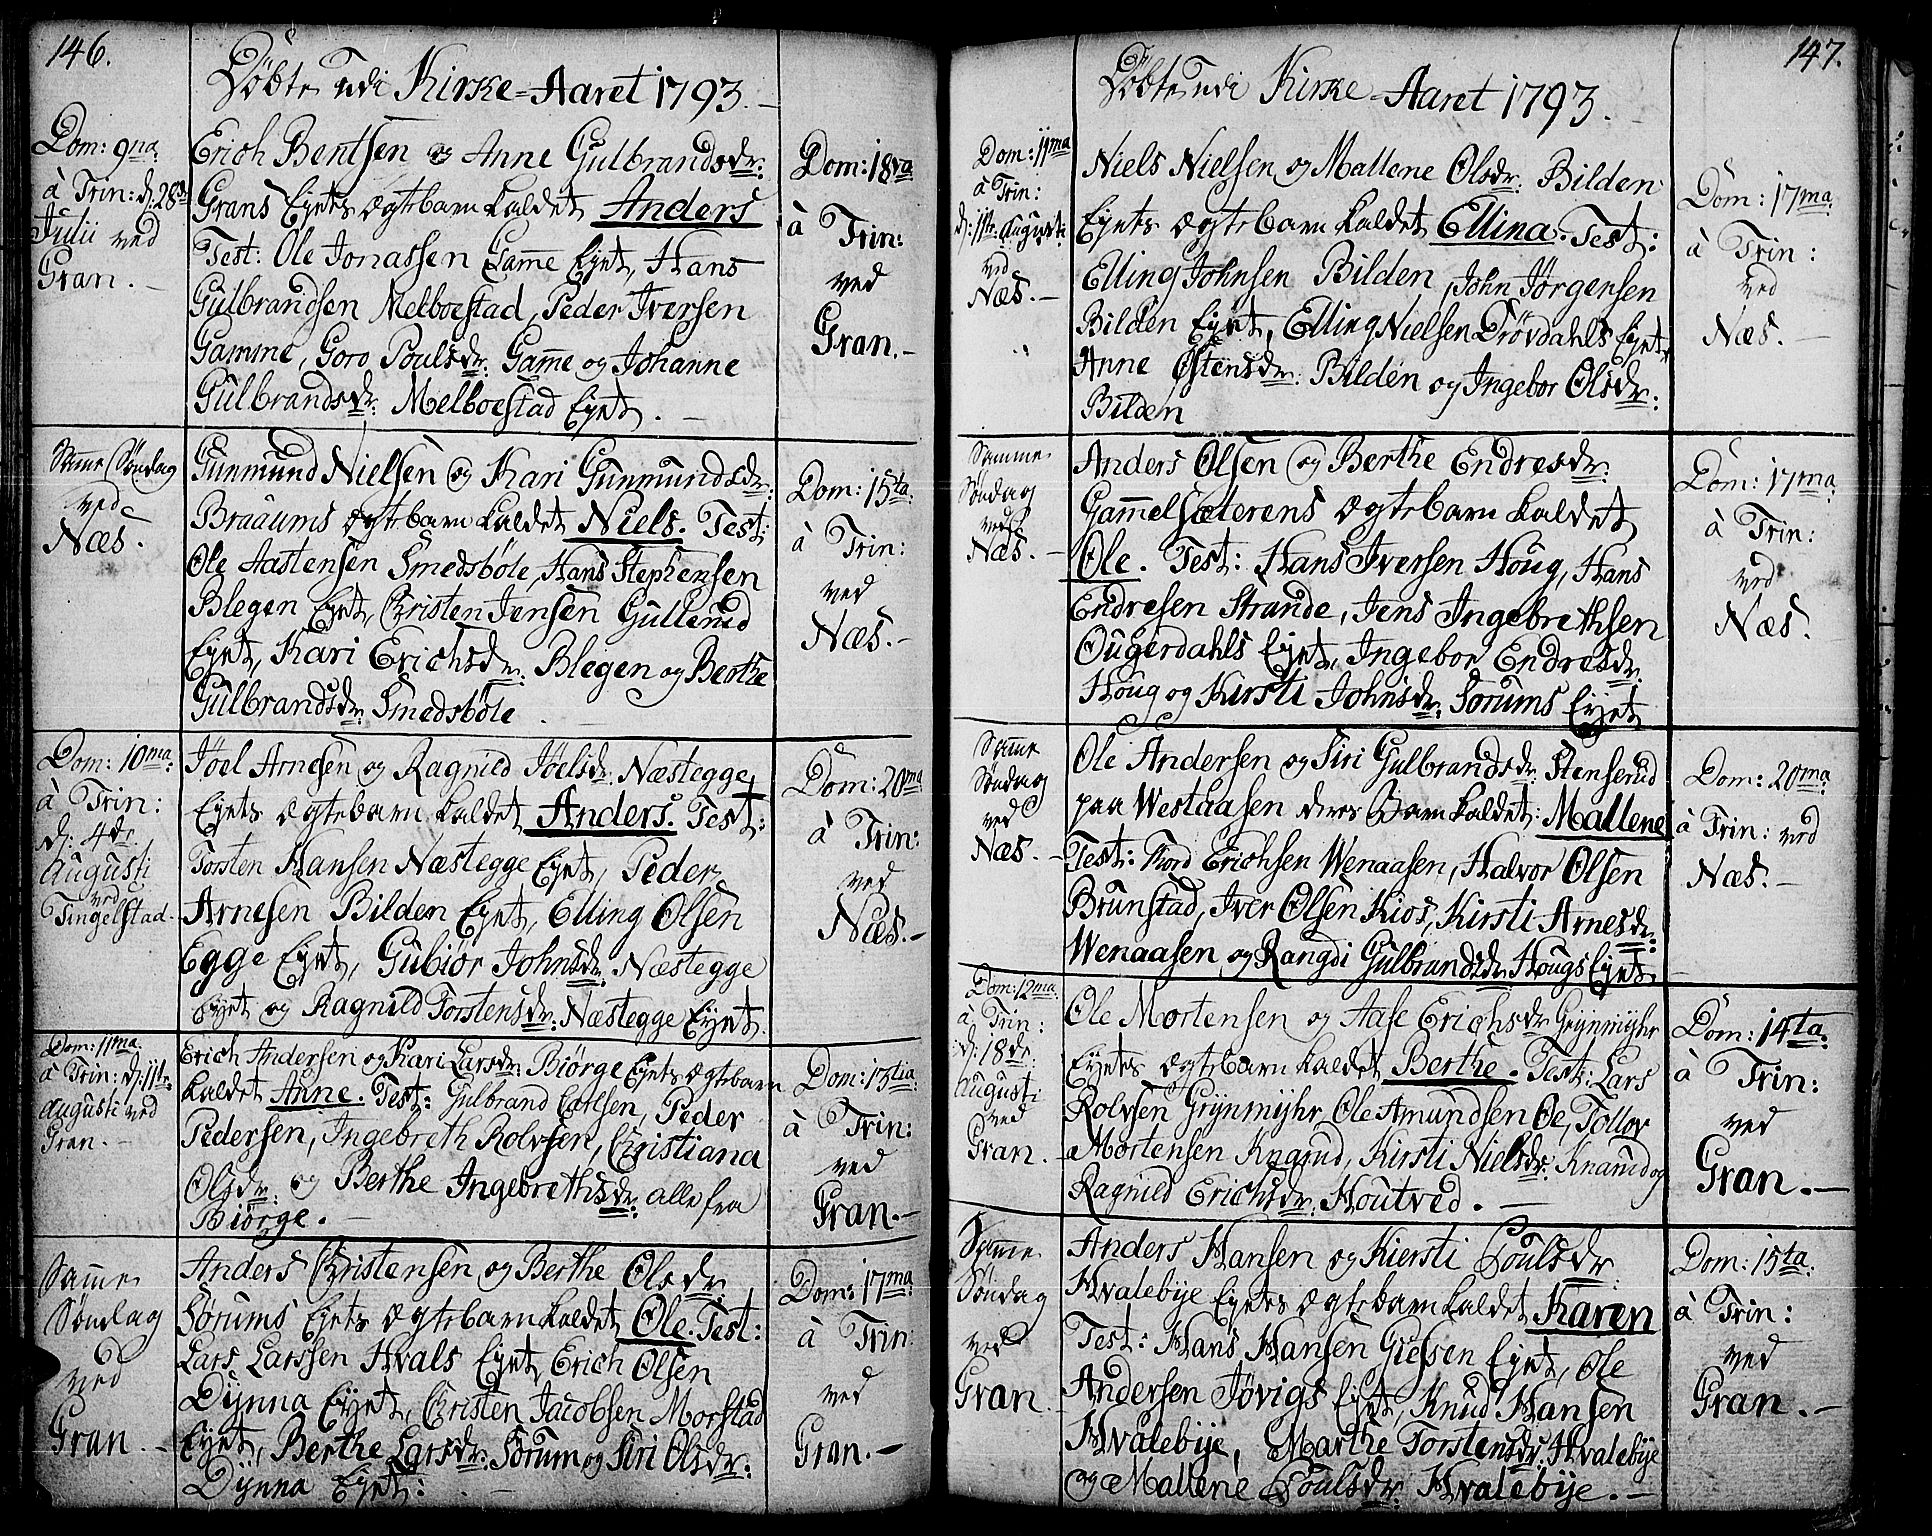 146.
Døbte udi Kirke-Aaret 1793.
Dom: 9na
à Trin: d: 28de
Julii ved
Gran.
Erich Bentsen og Anne Gulbrandsdr:
Grans Eyets ægte barn kaldet Anders
Test: Ole Jonassen Game Eyet, Hans
Gulbrandsen Melboestad, Peder Iversen
Gamme, Goro Poulsdr: Game og Johanne
Gulbrandsdr: Melboestad Eyet.
Dom: 18va
à Trin:
ved
Gran.
Same Søndag
ved
Næs.
Gunmund Nielsen og Kari Gunmundsdr:
Braaums ægte barn kaldet Niels. Test:
Ole Aastensen Smedsbøle, Hans Stephensen
Blegen Eyet, Christen Jensen Gullerud
Eyet, Kari Erichsdr: Blegen og Berthe
Gulbrandsdr: Smedsbøle
Dom: 15ta
à Trin:
ved
Næs.
Dom: 10ma
à Trin:
d: 4de
Augusti
ved
Tingelstad.
Jøel Arnesen og Ragnild Jøelsdr: Næstegge
Eyets ægte barn kaldet Anders. Test:
Torsten Hansen Næstegge Eyet, Peder
Arnesen Bilden Eyet, Elling Olsen
Egge Eyet, Gubiør Johnsdr: Næstegge
Eyet og Ragnild Torstensdr: Næstegge Eyet.
Dom: 20ma
à Trin:
ved
Næs.
Dom: 11ma
à Trin: d: 11te
Augusti ved
Gran.
Erich Andersen og Kari Larsdr: Biørge Eyets ægte barn
kaldet Anne. Test: Gulbrand Carlsen, Peder
Pedersen, Ingebreth Rolvsen, Christiana
Olsdr: og Berthe Ingebrethsdr: alle fra
Biørge.
Dom: 13tia
à Trin:
ved
Gran.
Same
Søndag
ved
Gran.
Anders Christensen og Berthe Olsdr:
Sørums Eyets ægte barn kaldet Ole. Test:
Lars Larssen Hvals Eyet, Erich Olsen
Dynna Eyet, Christen Jacobsen Morstad
Eyet, Berthe Larsdr: Sørum og Siri Olsdr:
Dynna Eyet:
Dom: 17ma
à Trin:
ved
Gran.
147.
Døbte udi Kirke-Aaret 1793.
Dom: 11ma
à Trin:
d: 11te Augusti
ved
Næs.
Niels Nielsen og Mallene Olsdr: Bilden
Eyets ægte barn kaldet Ellina. Test:
Elling Johnsen Bilden, John Jørgensen
Bilden Eyet, Elling Nielsen Trøvdahls Eyet
Anne Østensdr: Bilden og Ingebor Olsdr:
Bilden
Dom: 17ma
à Trin:
ved
Næs.
Samme
Søndag
ved
Næs.
Anders Olsen og Berthe Endresdr:
Gammelsæterens ægte barn kaldet
Ole. Test: Hans Iversen Houg, Hans
Endresen Strande, Jens Ingebrethsen
Ougerdahls Eyet, Ingebor Endresdr:
Houg og Kirsti Johnsdr: Sørums Eyet
Dom: 17ma
à Trin:
ved
Næs.
Same
Søndag
ved
Næs.
Ole Andersen og Siri Gulbrandsdr: Stenserud
paa Westaasen deres Barn kaldet: Mallene
Test: Thord Erichsen Wenaasen, Halvor Olsen
Brunstad, Iver Olsen Kios, Kirsti Arnesdr:
Wenaasen og Rangdi Gulbrandsdr: Hougs Eyet.
Dom: 20ma
à Trin: ved
Næs.
Dom: 12ma
à Trin:
d: 18de
Augusti
ved
Gran.
Ole Mortensen og Aase Erichsdr: Grynmyhr
Eyets ægte barn kaldet Berthe. Test: Lars
Rolvsen Grynmyhr, Ole Amundsen Oe, Tollov
Mortensen Knarud, Kirsti Nielsdr: Knarud og
Ragnild Erichsdr: Houtved.
Dom: 14ta
à Trin:
ved
Gran.
Same
Søndag
ved
Gran.
Anders Hansen og Kiersti Poulsdr:
Hvalebye Eyets ægte barn kaldet Karen
Test: Hans Hansen Giessen Eyet, Ole
Andersen Jøvigs Eyet, Knud Hansen
Hvalebye, Marthe Torstensdr: Hvalebye
og Mallene Poulsdr: Hvalebye.
Dom: 15ta
à Trin:
ved
Gran.